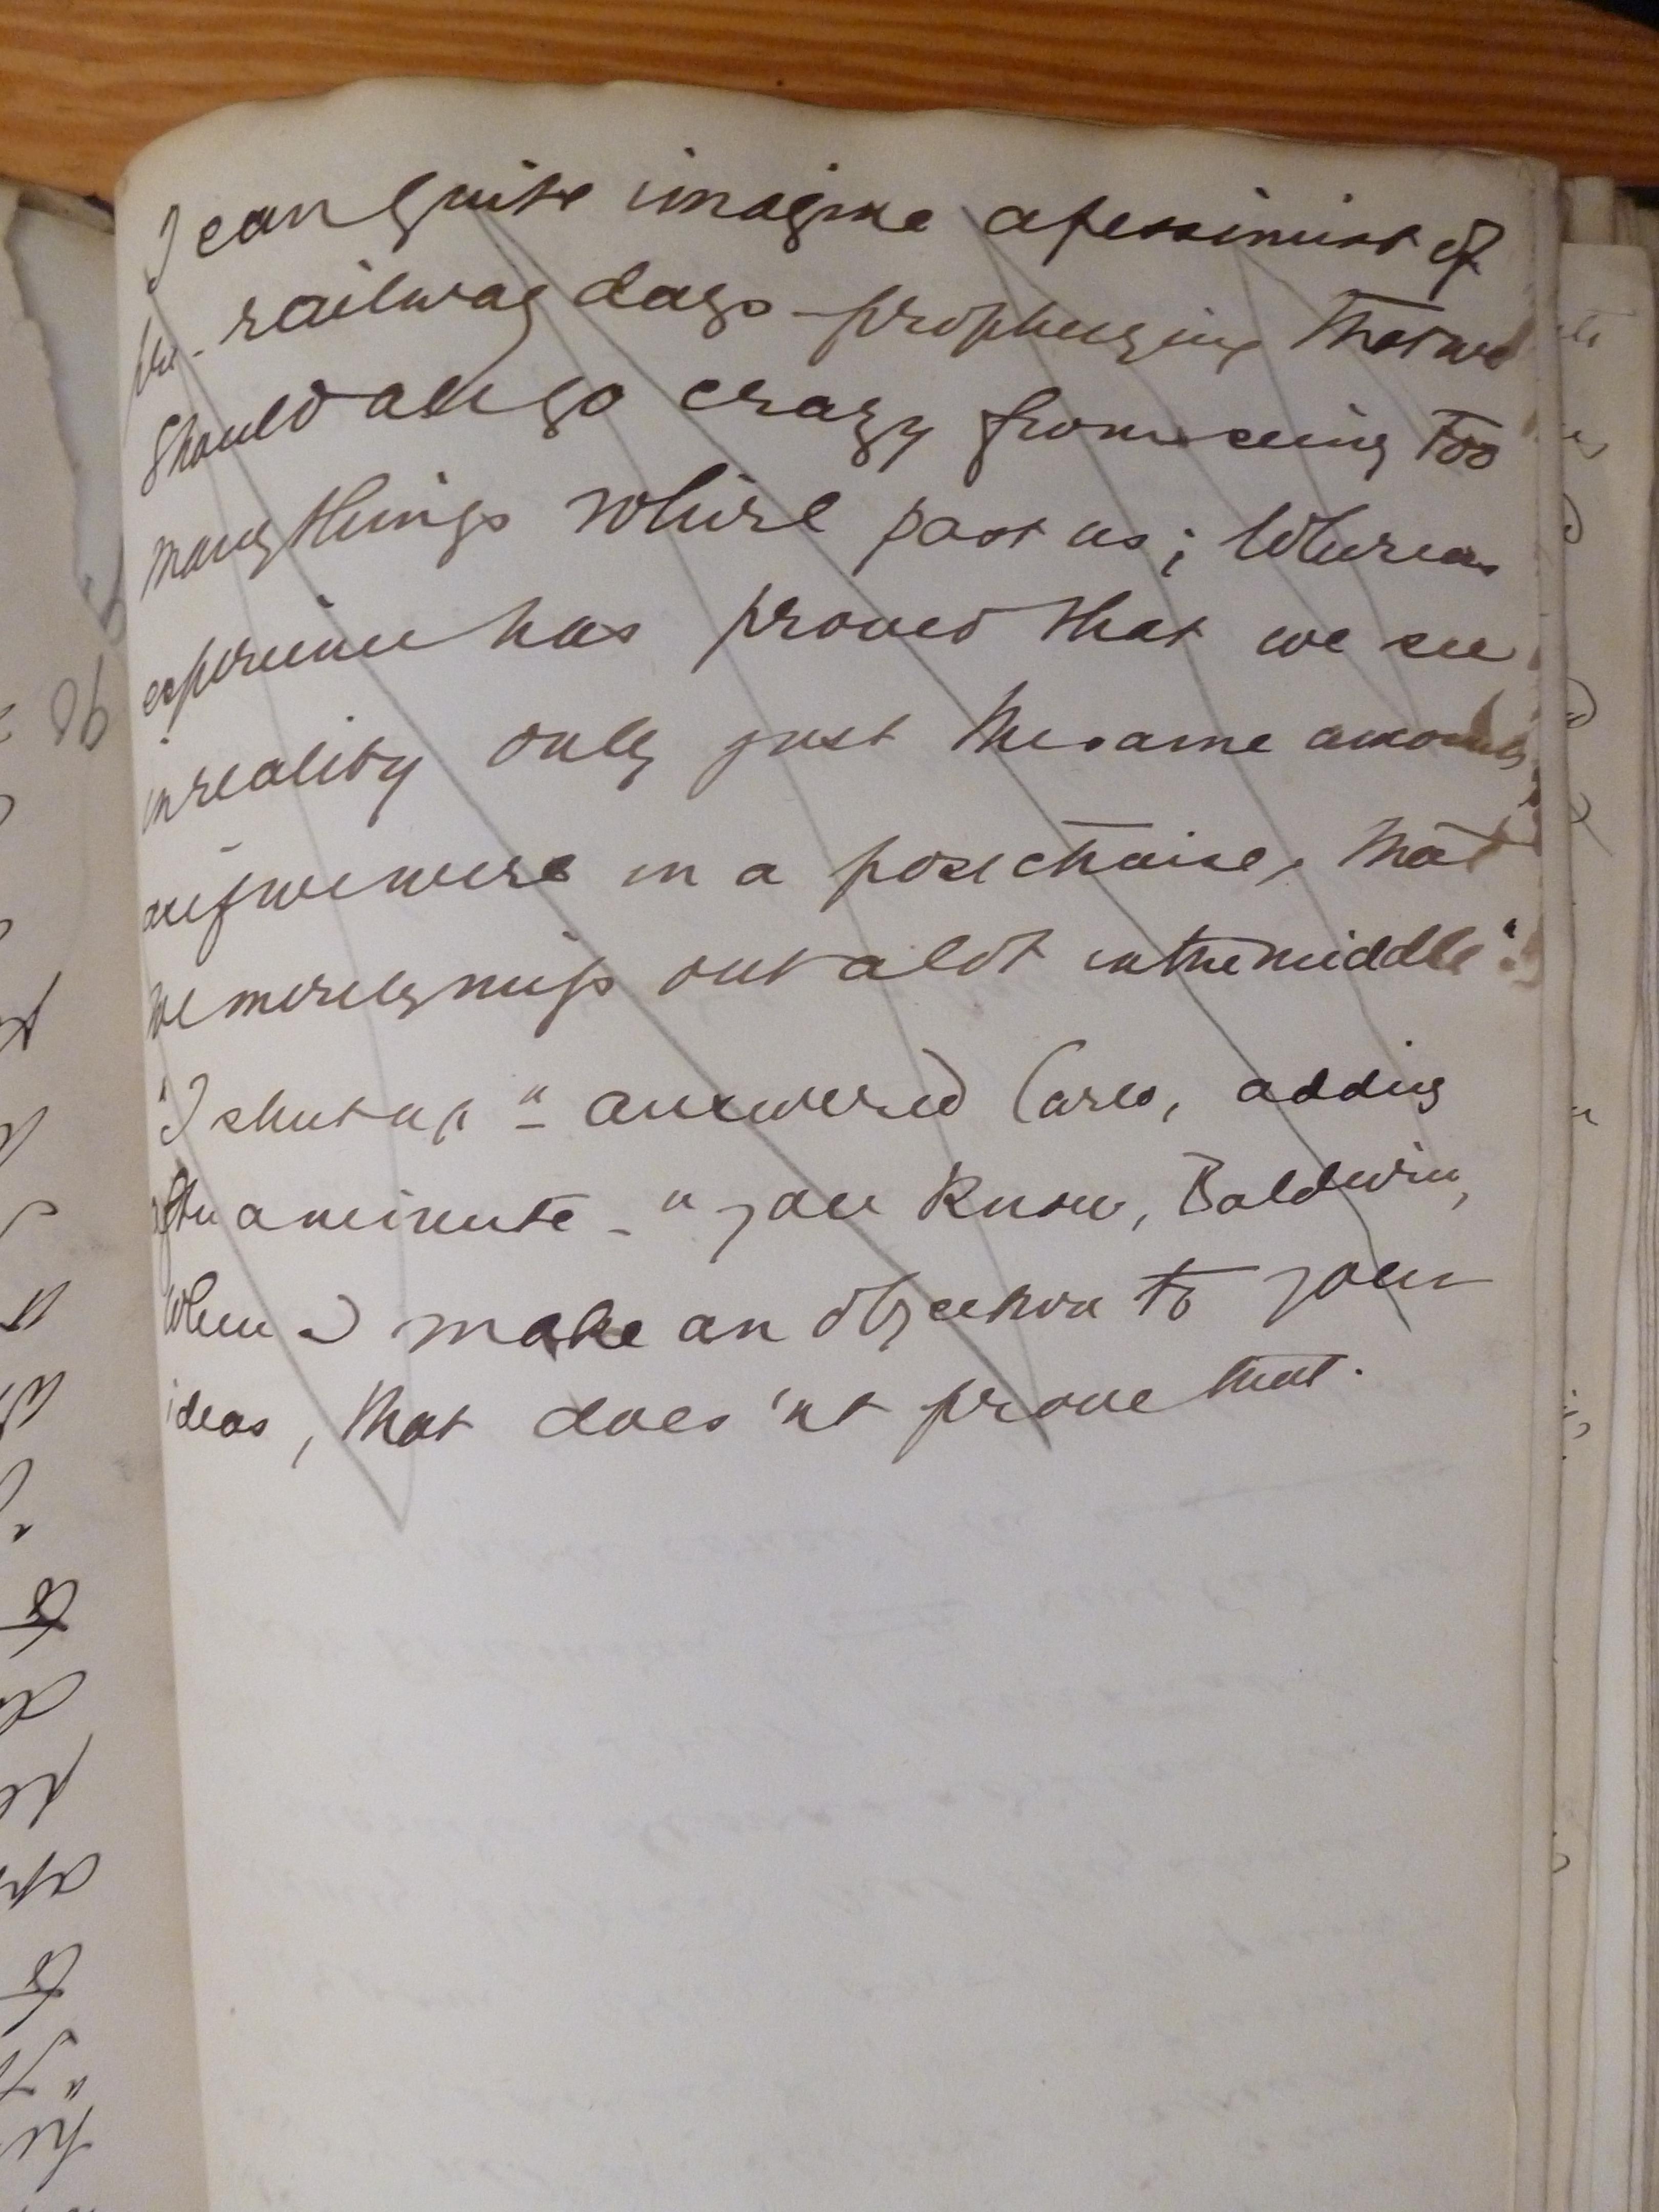 I can quite imagine a pessimist of
pre-railway days prophesying that we
should all go crazy from seeing too
many things whirl past us; whereas
experience has proved that we see
in reality only just the same amount
as if we were in a postchaise, that
we merely miss out a lot in the middle".
"I shut up" - answered Carlo, adding
after a minute - "you know, Baldwin,
when I make an objection to your
ideas, that does'nt prove that.
96